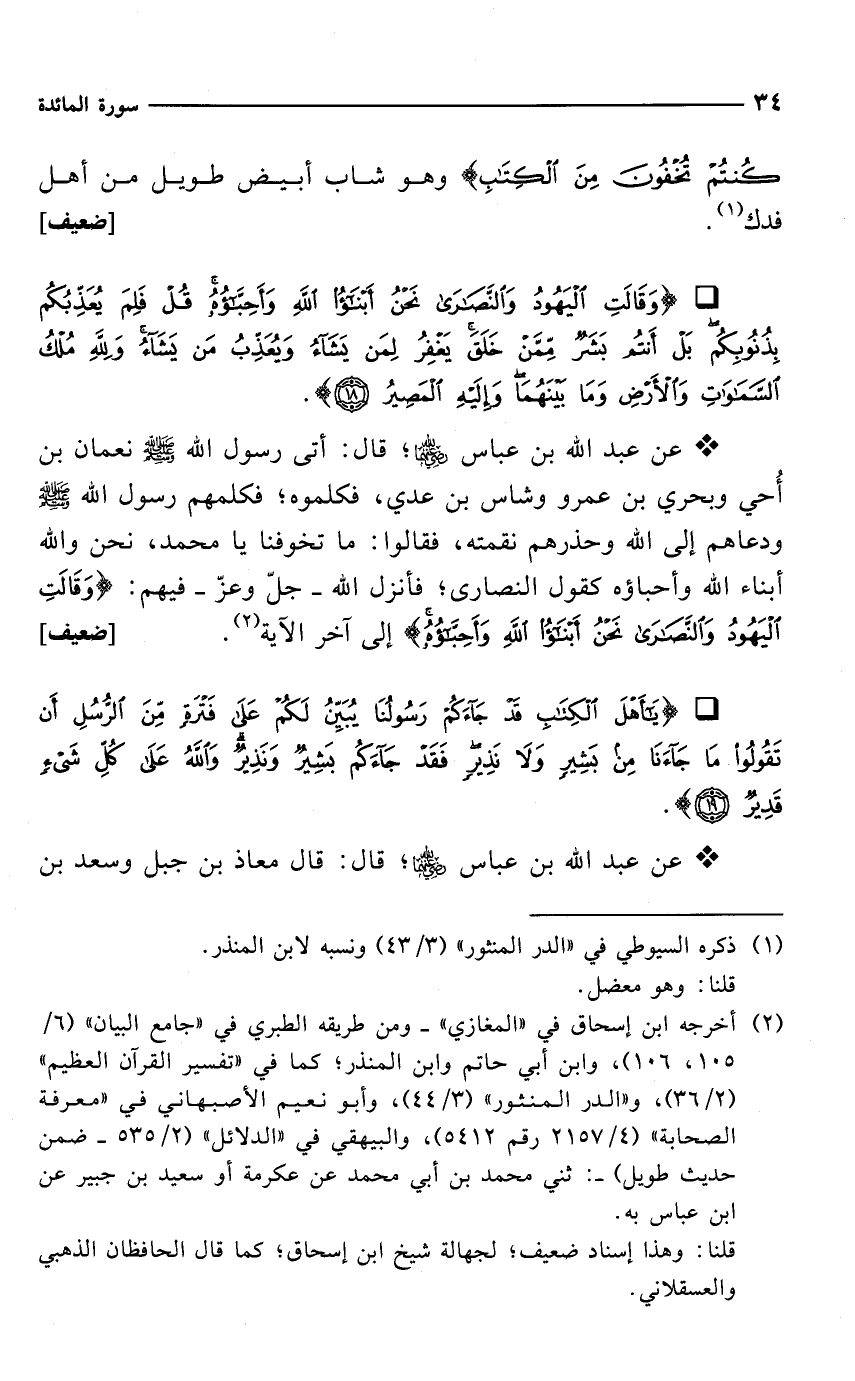 ٣٤ سورة المائدة
كُنتُمْ تُخْفُونَ مِنَ ٱلْكِتَٰبِ﴾ وهـو شـاب أبـيـض طـويـل مـن أهـل
فدك(١). [ضعيف]
❑ ﴿وَقَالَتِ ٱلْيَهُودُ وَٱلنَّصَٰرَىٰ نَحْنُ أَبْنَٰٓؤُا۟ ٱللَّهِ وَأَحِبَّٰٓؤُهُۥۚ قُلْ فَلِمَ يُعَذِّبُكُم
بِذُنُوبِكُمۖ بَلْ أَنتُم بَشَرٌ مِّمَّنْ خَلَقَۚ يَغْفِرُ لِمَن يَشَآءُ وَيُعَذِّبُ مَن يَشَآءُۚ وَلِلَّهِ مُلْكُ
ٱلسَّمَٰوَٰتِ وَٱلْأَرْضِ وَمَا بَيْنَهُمَاۖ وَإِلَيْهِ ٱلْمَصِيرُ ١٨﴾.
❖ عن عبد الله بن عباس ﵄؛ قال: أتى رسول الله ﷺ نعمان بن
أُحي وبحري بن عمرو وشاس بن عدي، فكلموه؛ فكلمهم رسول الله ﷺ
ودعاهم إلى الله وحذرهم نقمته، فقالوا: ما تخوفنا يا محمد، نحن والله
أبناء الله وأحباؤه كقول النصارى؛ فأنزل الله ـ جلّ وعزّ ـ فيهم: ﴿وَقَالَتِ
ٱلْيَهُودُ وَٱلنَّصَٰرَىٰ نَحْنُ أَبْنَٰٓؤُا۟ ٱللَّهِ وَأَحِبَّٰٓؤُهُۥۚ﴾ إلى آخر الآية(٢). [ضعيف]
❑ ﴿يَٰٓأَهْلَ ٱلْكِتَٰبِ قَدْ جَآءَكُمْ رَسُولُنَا يُبَيِّنُ لَكُمْ عَلَىٰ فَتْرَةٍ مِّنَ ٱلرُّسُلِ أَن
تَقُولُوا۟ مَا جَآءَنَا مِنۢ بَشِيرٍ وَلَا نَذِيرٍۖ فَقَدْ جَآءَكُم بَشِيرٌ وَنَذِيرٌۗ وَٱللَّهُ عَلَىٰ كُلِّ شَىْءٍ
قَدِيرٌ ١٩﴾.
❖ عن عبد الله بن عباس ﵄؛ قال: قال معاذ بن جبل وسعد بن
(١) ذكره السيوطي في «الدر المنثور» (٣/ ٤٣) ونسبه لابن المنذر.
قلنا: وهو معضل.
(٢) أخرجه ابن إسحاق في «المغازي» ـ ومن طريقه الطبري في «جامع البيان» (٦/
١٠٥، ١٠٦)، وابن أبي حاتم وابن المنذر؛ كما في «تفسير القرآن العظيم»
(٢/ ٣٦)، و«الدر الـمـنـثـور» (٣/ ٤٤)، وأبـو نـعـيـم الأصـبـهـانـي فـي «مـعـرفـة
الصحابة» (٤/ ٢١٥٧ رقم ٥٤١٢)، والبيهقي في «الدلائل» (٢/ ٥٣٥ ـ ضمن
حديث طويل) ـ: ثني محمد بن أبي محمد عن عكرمة أو سعيد بن جبير عن
ابن عباس به.
قلنا: وهذا إسناد ضعيف؛ لجهالة شيخ ابن إسحاق؛ كما قال الحافظان الذهبي
والعسقلاني.